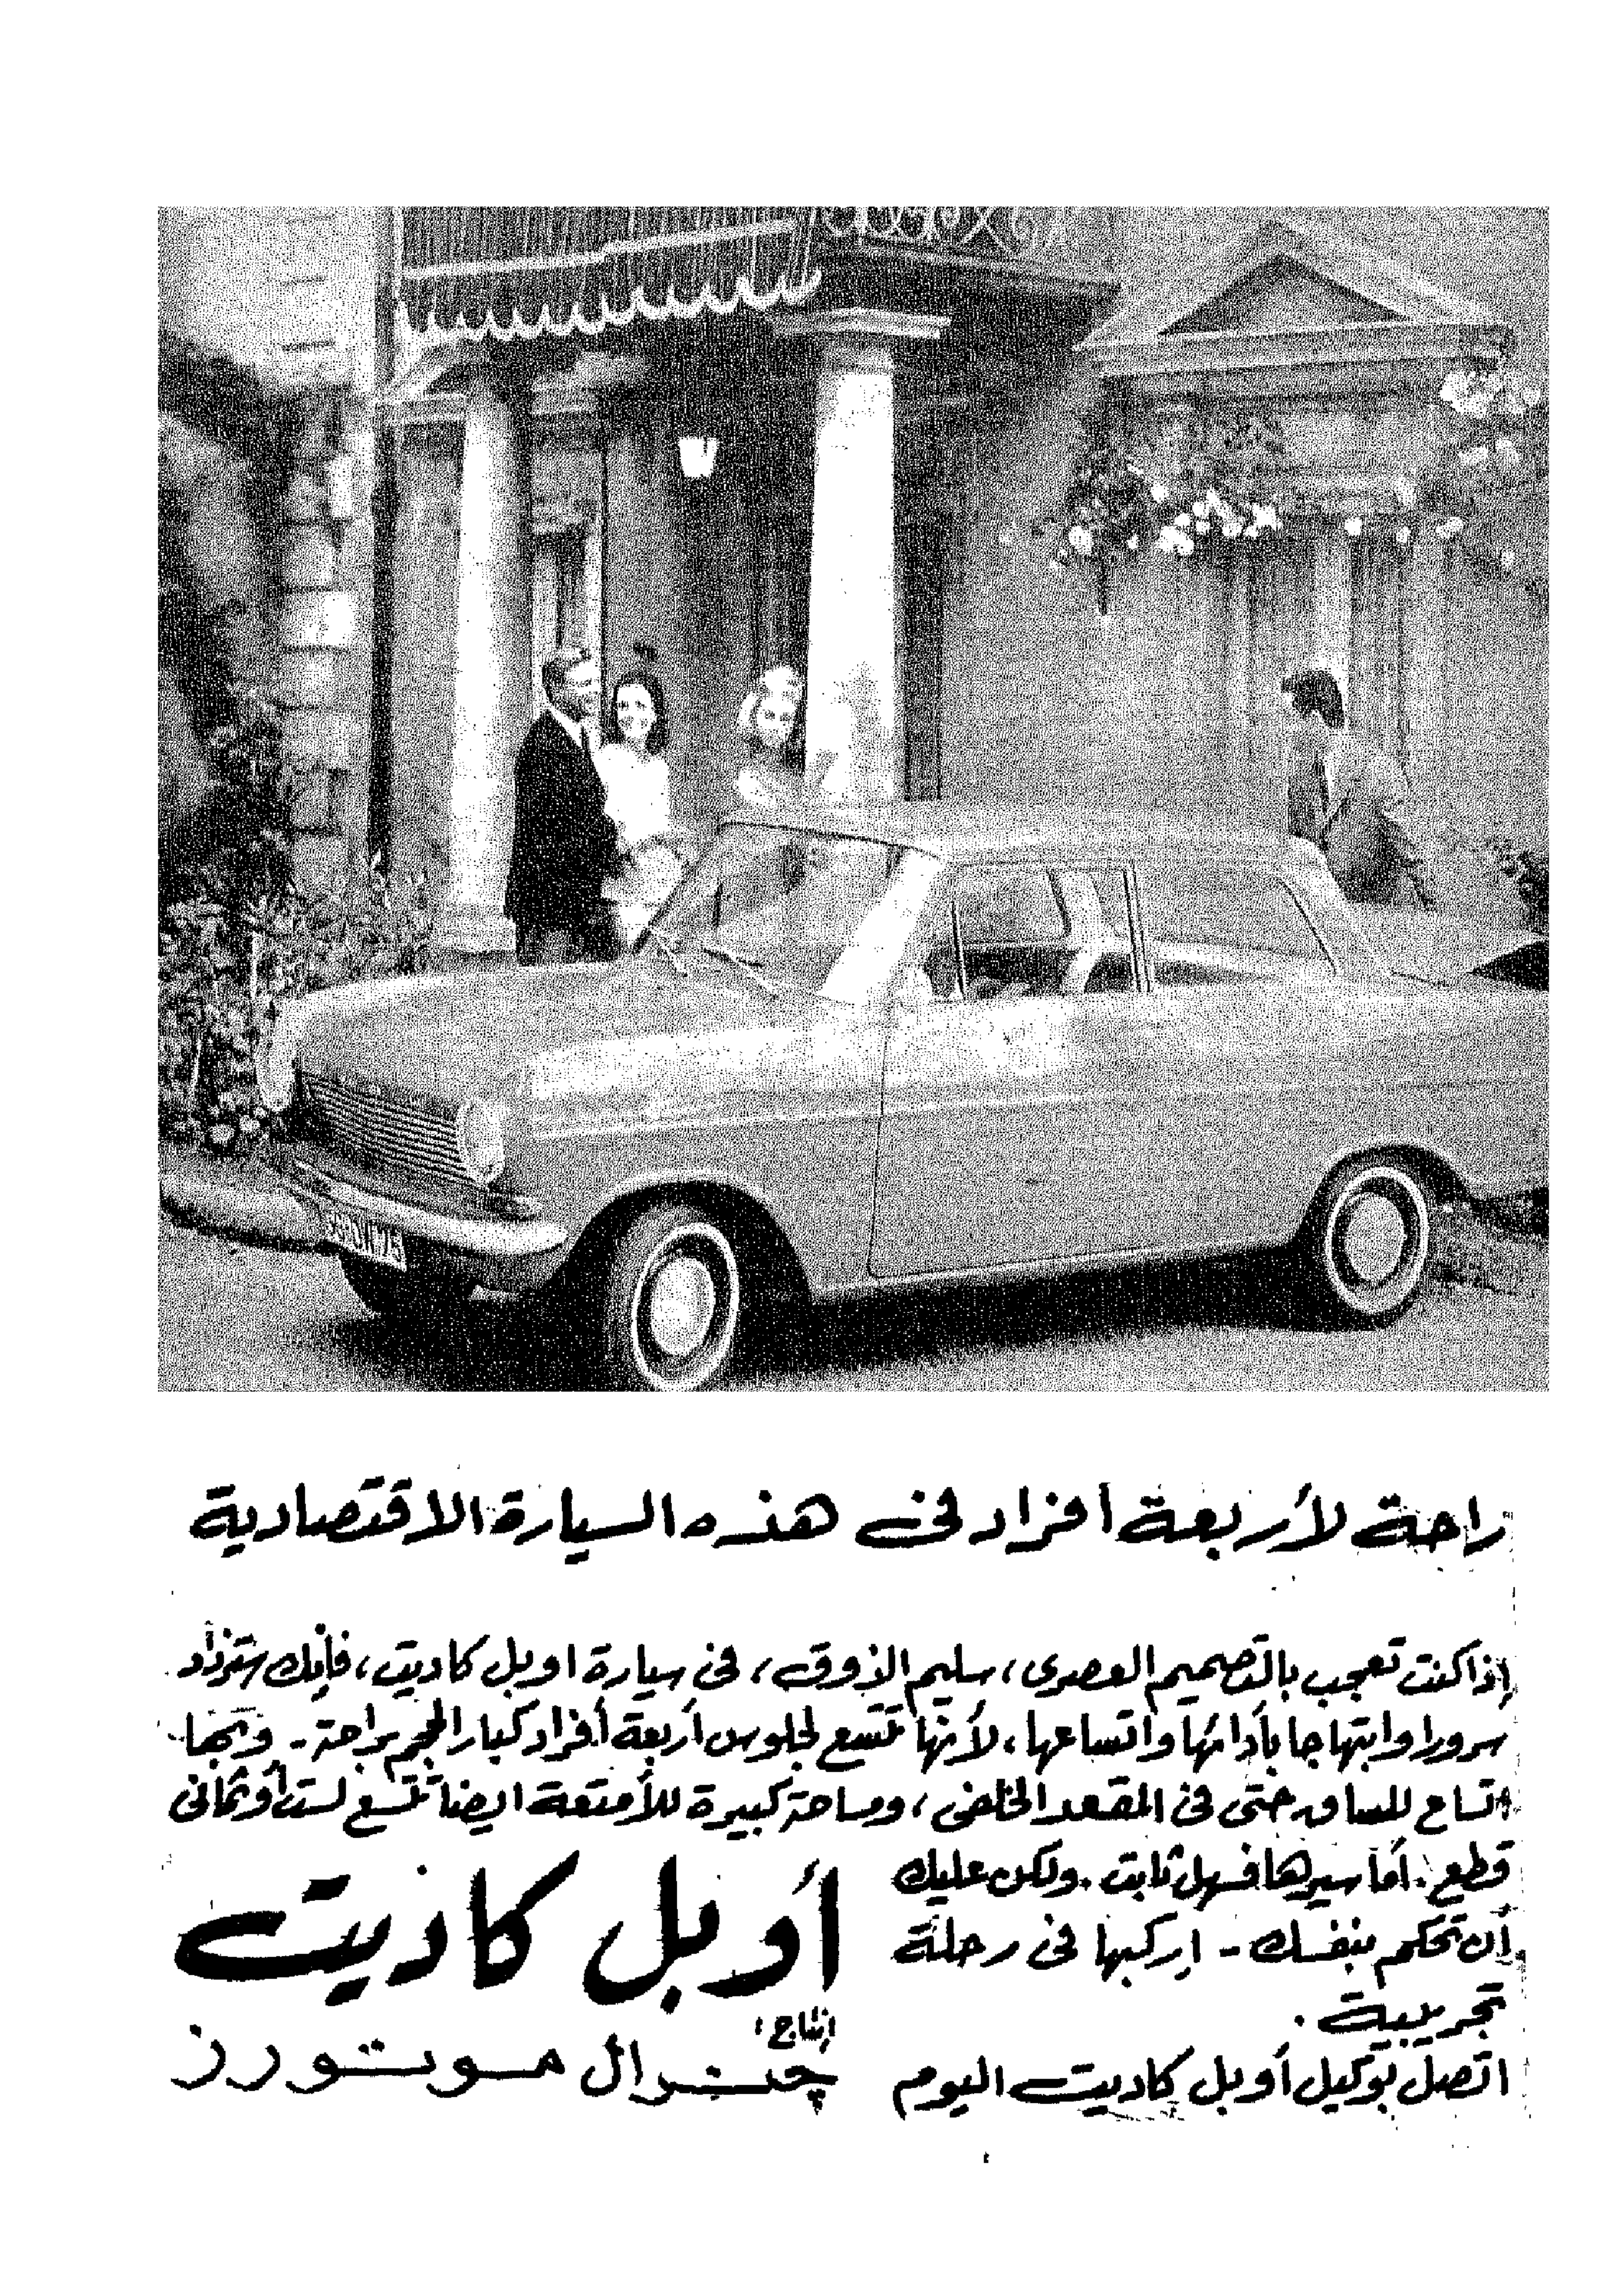 راحة لأربعة أفراد في هذه السيارة الاقتصادية
إذا كنت تعجب بالتصميم العصرى، سليم الذوق، فى سيارة اوبل كاديت، فإنك ستزداد
سرورا وابتهاجا بأدائها واتساعها، لأنها تتسع لجلوس أربعة أفراد كبار الحجم براحة - وبها
اتساع للساق حتى فى المقعد الخلفى، ومساحة كبيرة للأمتعة ايضا تتسع لست أو ثمانى
قطع. أما سيرها فسهل ثابت. ولكن عليك
أن تحكم بنفسك - اركبها فى رحلة
تجريبية.
اتصل بوكيل أوبل كاديت اليوم
أوبل كاديت
إنتاج:
جنرال موتورز